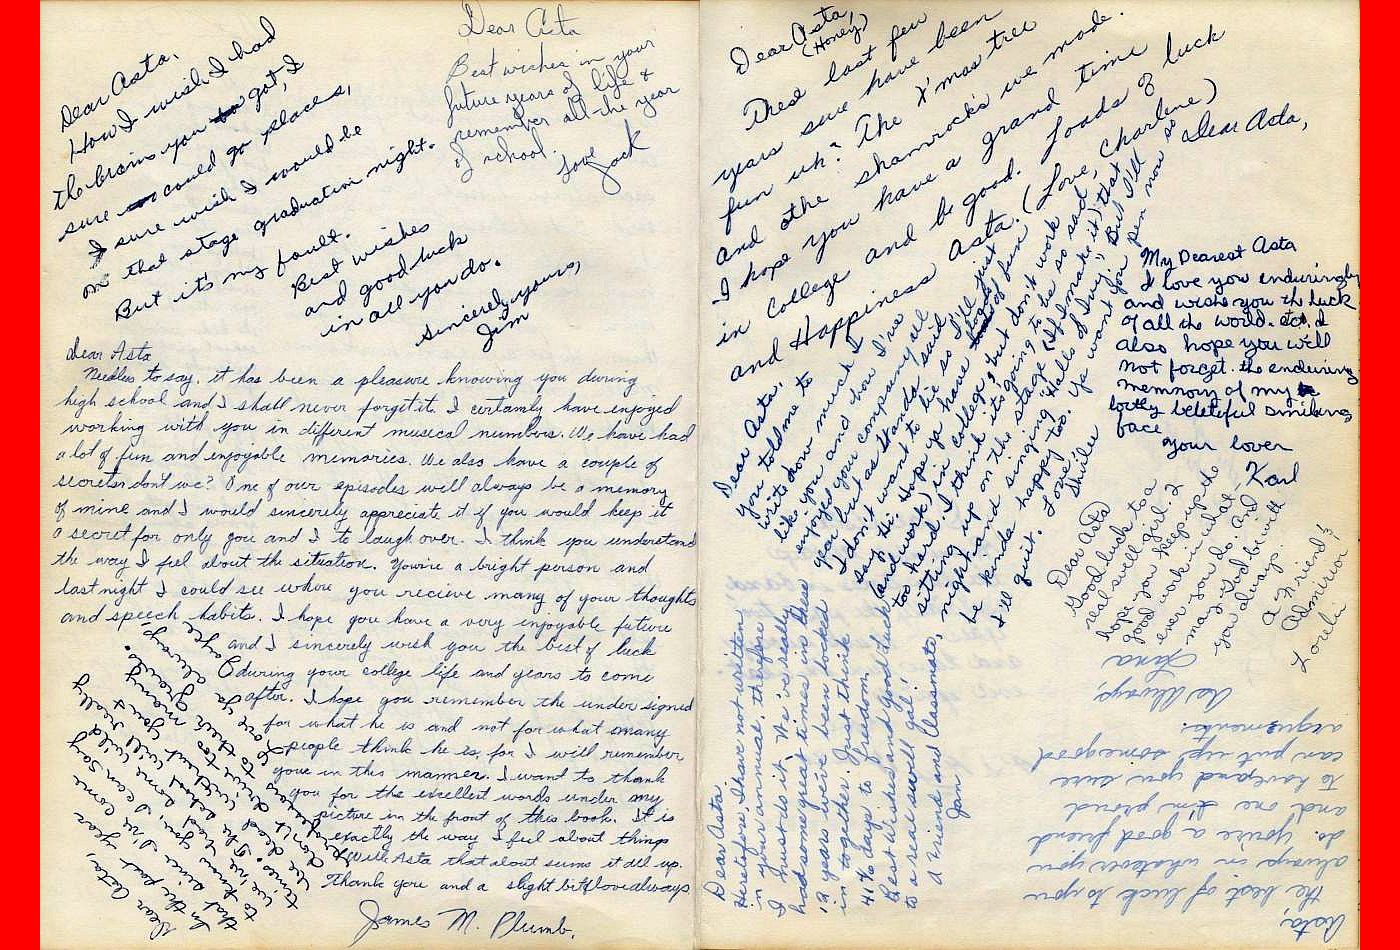 Dear Asta,
How I wish I had
the brains you got, I
sure could go places,
I sure wish I would be
on that stage graduation night.
But it's my fault.
Best wishes
and good luck
in all you do.
Sincerely yours,
Jim
Dear Asta
Best wishes in your
future years of life &
remember all the year
of school.
Love
Jack
dear Asta
Needless to say, it has been a pleasure knowing you during
high school and I shall never forget it. I certainly have enjoyed
working with you in different musical numbers. We have had
a lot of fun and enjoyable memories. We also have a couple of
secrets don't we? One of our episodes will always be a memory
of mine and I would sincerely appreciate it if you would keep it
a secret for only you and I to laugh over. I think you understand
the way I feel about the situation. You're a bright person and
last night I could see where you recieve many of your thoughts
and speech habits. I hope you have a very enjoyable future
and I sincerely wish you the best of luck
during your college life and years to come
after. I hope you remember the undersigned
for what he is and not for what many
people think he is, for I will remember
you in this manner. I want to thank
you for the excellest words under my
picture in the front of this book. It is
exactly the way I feel about things
Well Asta that about sums it all up.
Thank you and a slight bit of love always
James M. Plumb.
Dear Asta,
In the past year
that I've come
to know you, I can say
we've had some wild
times. The school will really
be dead without you &
Dear Asta,
(Honey)
These last few
years sure have been
fun uh? The X'mas tree
and othe shamrocks we made.
I hope you have a grand time
in college and be good. Loads of luck
and Happiness Asta. (Love, Charlene)
Dear Asta,
Dear Asta,
you told me to
write how much I
like you and how I've
enjoyed your company all
year but as Stands said
I don't want to lie so I'll just
say Hi. Hope ya have loads of fun
(and work) in college, but don't work
too hard. I think its going to be so sad,
sitting up on the stage (If I make it) that
night and singing "Halls of Ivy." But I'll
be kinda happy too. Ya want you pen now so
I'll quit.
Love,
Shirlee
My Dearest Asta
I love you enduringly
and wish you the luck
of all the world. etc. I
also hope you will
not forget. the enduring
memnory of my
beleteful smileing
face
Your lover
Karl
Dear Asta
Good luck to a
real swell girl. I
hope you keep up the
good work in what
ever you do. And
may God be with
you always.
A Friend &
Admirror!
Lorelei
Dear Asta,
Heretofore, I have not written
in your annual, therefore
I must do it. We've really
had some great times in these
12 years we've been locked
in together. Just think
41½ days to freedom.
Best Wishes and good luck
to a real swell gal!
A friend and classmate,
Jan
Asta,
the best of luck to you
always in whatever you
do. You're a good friend
and one I'm proud
to have, and you sure
can put up some good
arguements.
As Always
Lana